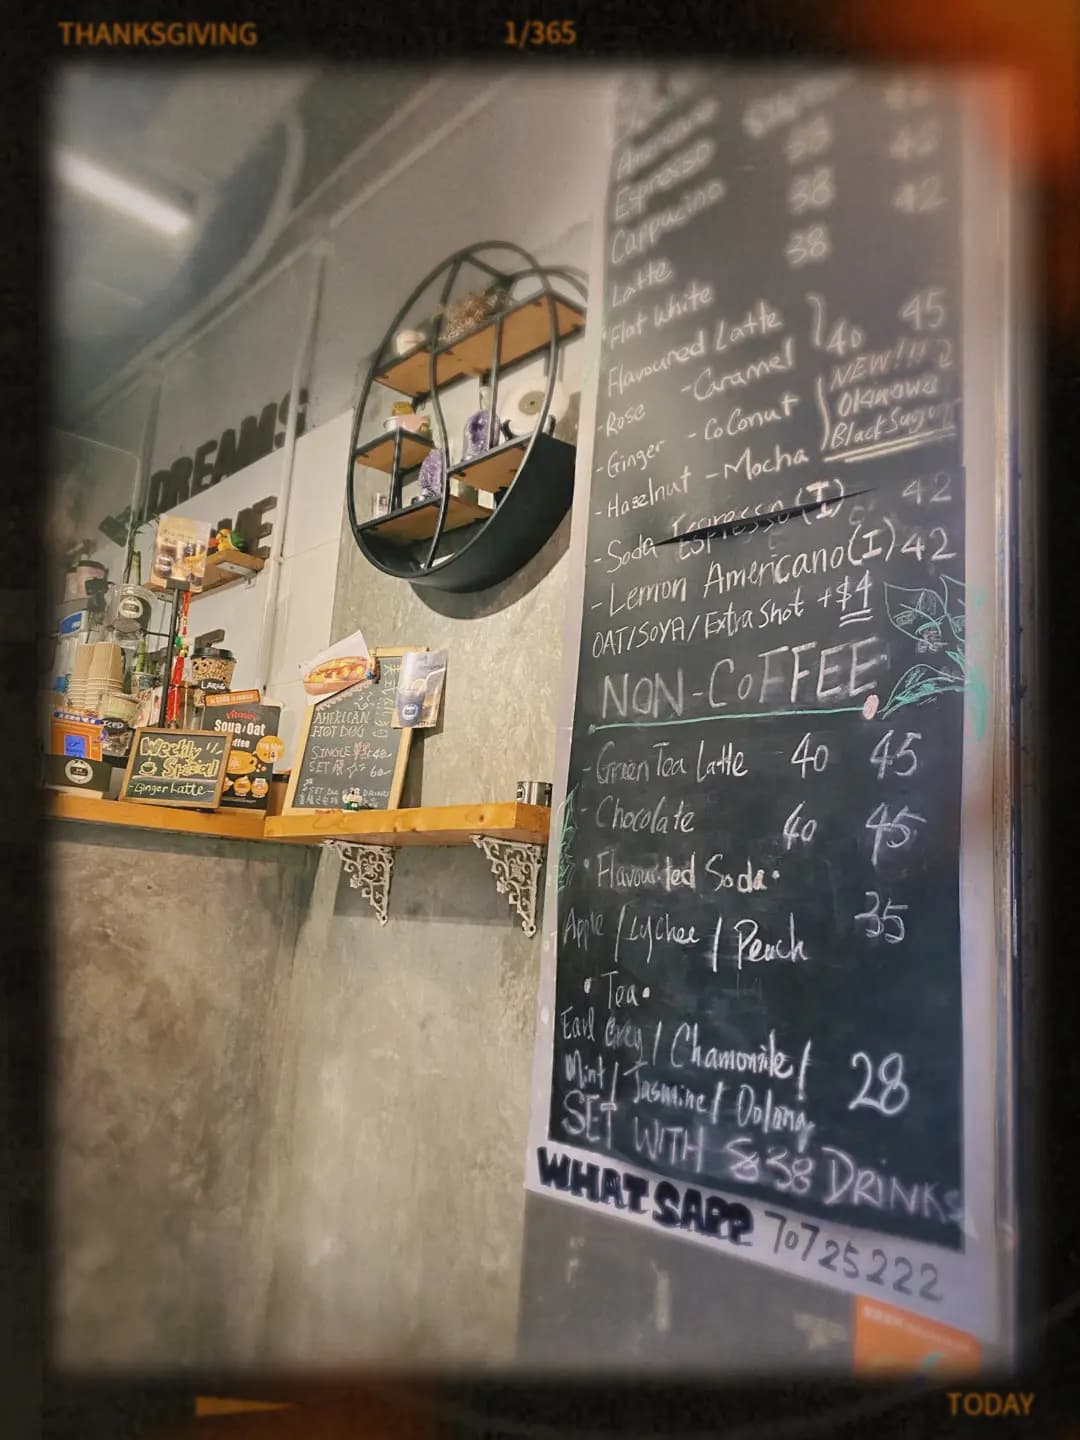 THANKSGIVING
1/365
42
Americano 38 42
Espresso 38 42
Cappucino 38
Latte
Flat White
Flavoured Latte 40 45
-Rose -Caramel NEW!!!
-Ginger -CoConut Okinawa
-Hazelnut -Mocha BlackSugar
-Soda Espresso (I) 42
-Lemon Americano(I) 42
OAT/SOYA/Extra Shot +$4
NON-COFFEE
-Green Tea Latte 40 45
-Chocolate 40 45
•Flavourted Soda•
Apple / Lychee / Peach 35
•Tea•
Earl Grey / Chamomile /
Mint / Jasmine / Oolong 28
SET WITH $38 DRINKS
WHATSAPP 70725222
DREAMS
ME
AMERICAN
HOT DOG
SINGLE
SET
Weekly
Special
-Ginger Latte-
Soya Oat
ICED
TODAY